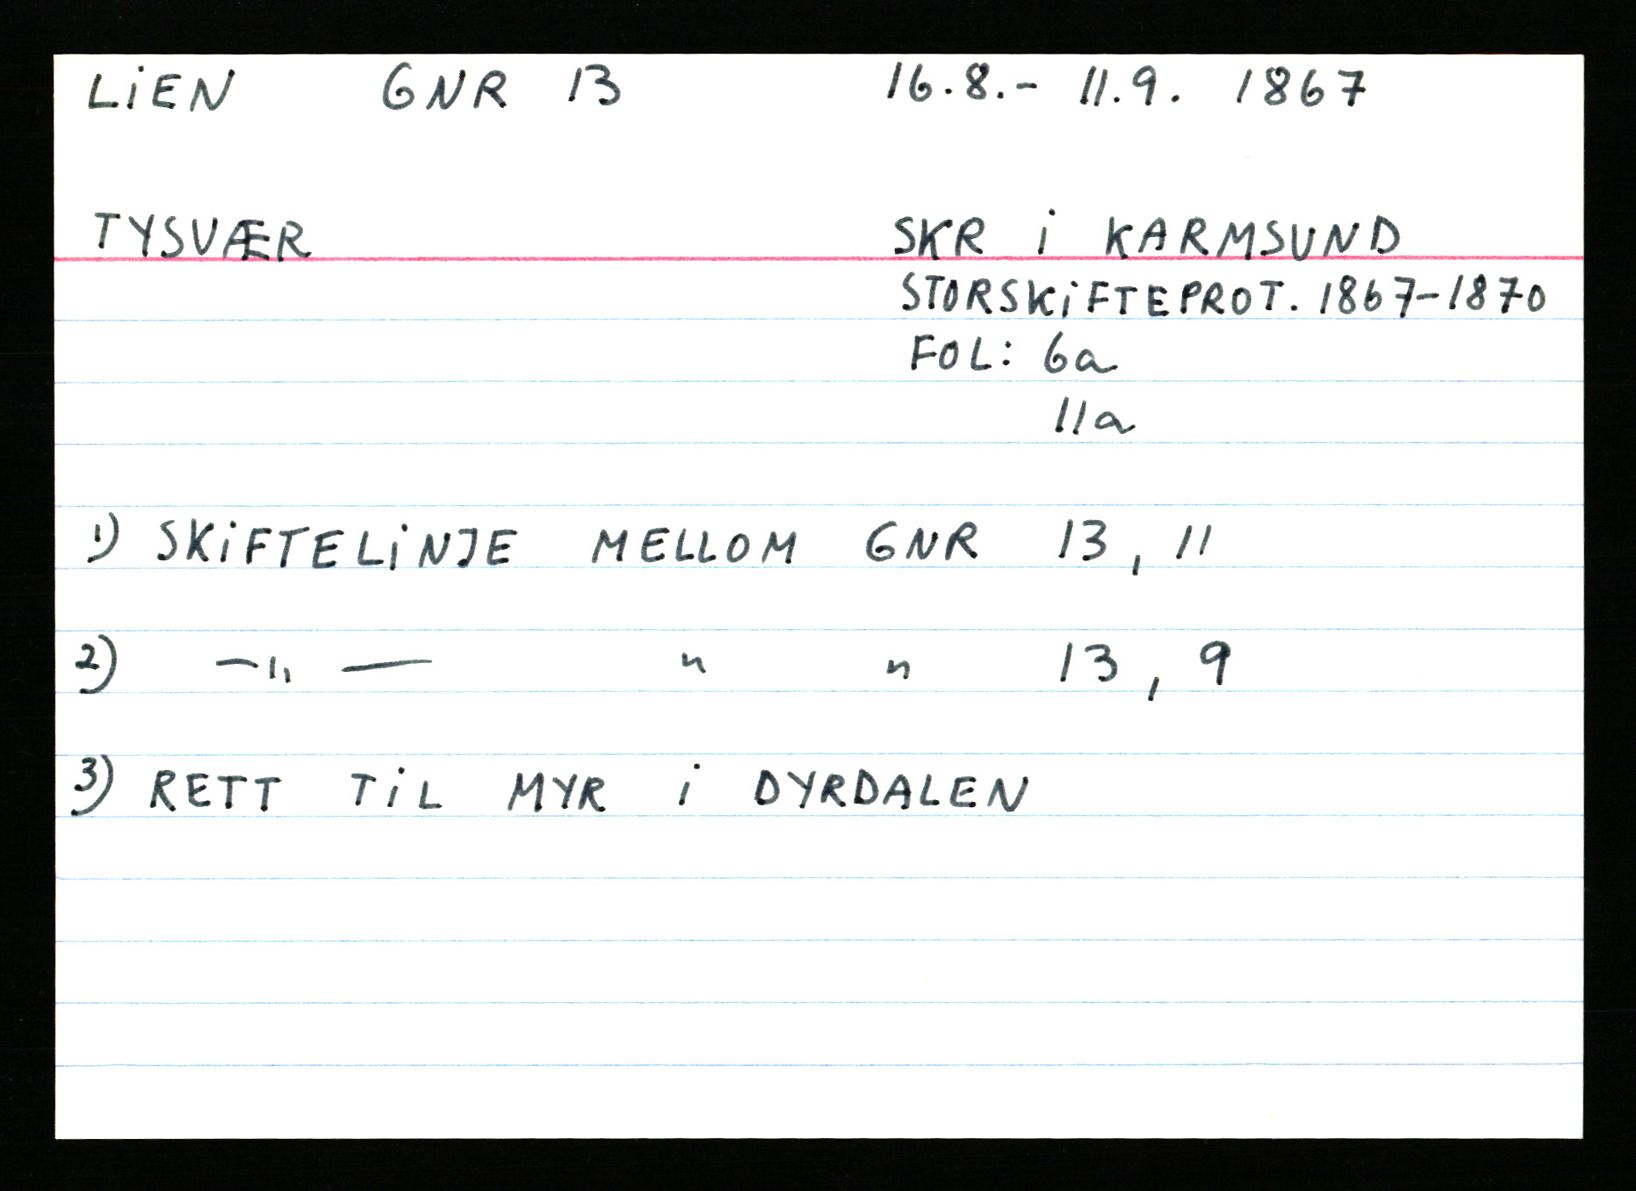 LiEN GNR 13 16.8.- 11.9. 1867
TYSVÆR SKR i KARMSUND
STORSKiFTEPROT. 1867-1870
FOL: 6a
11a
1) SKiFTELiNJE MELLOM GNR 13, 11
2) —„— " " 13, 9
3) RETT TiL MYR i DYRDALEN